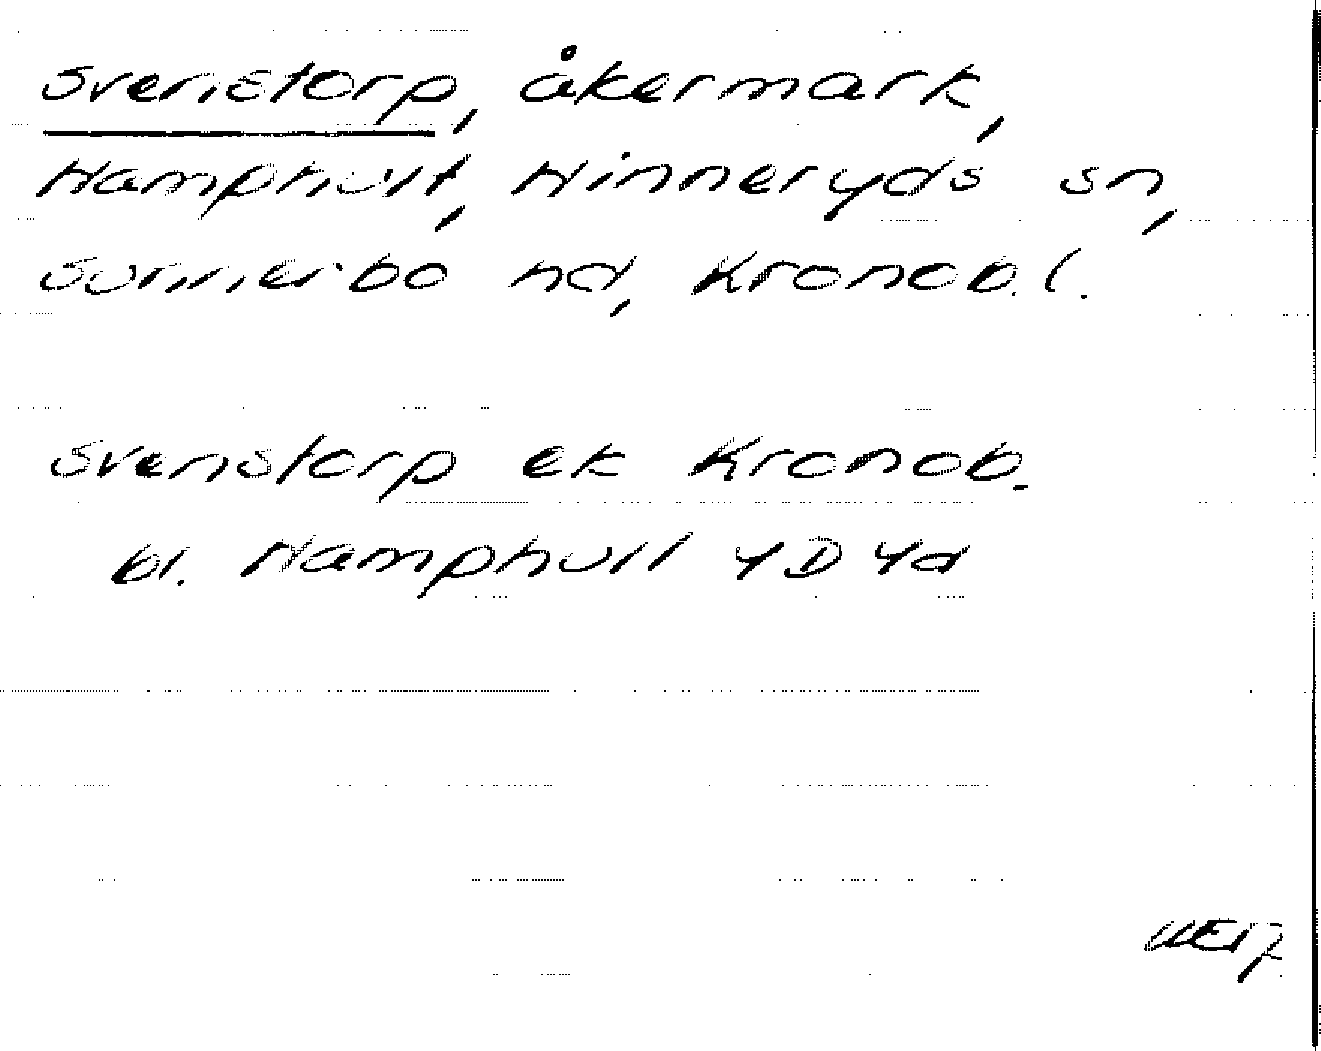 Svenstorp, åkermark,
Hamphult, Hinneryds sn,
Sunnerbo hd, Kronob. l.
Svenstorp ek Kronob.
bl. Hamphult 4D4d